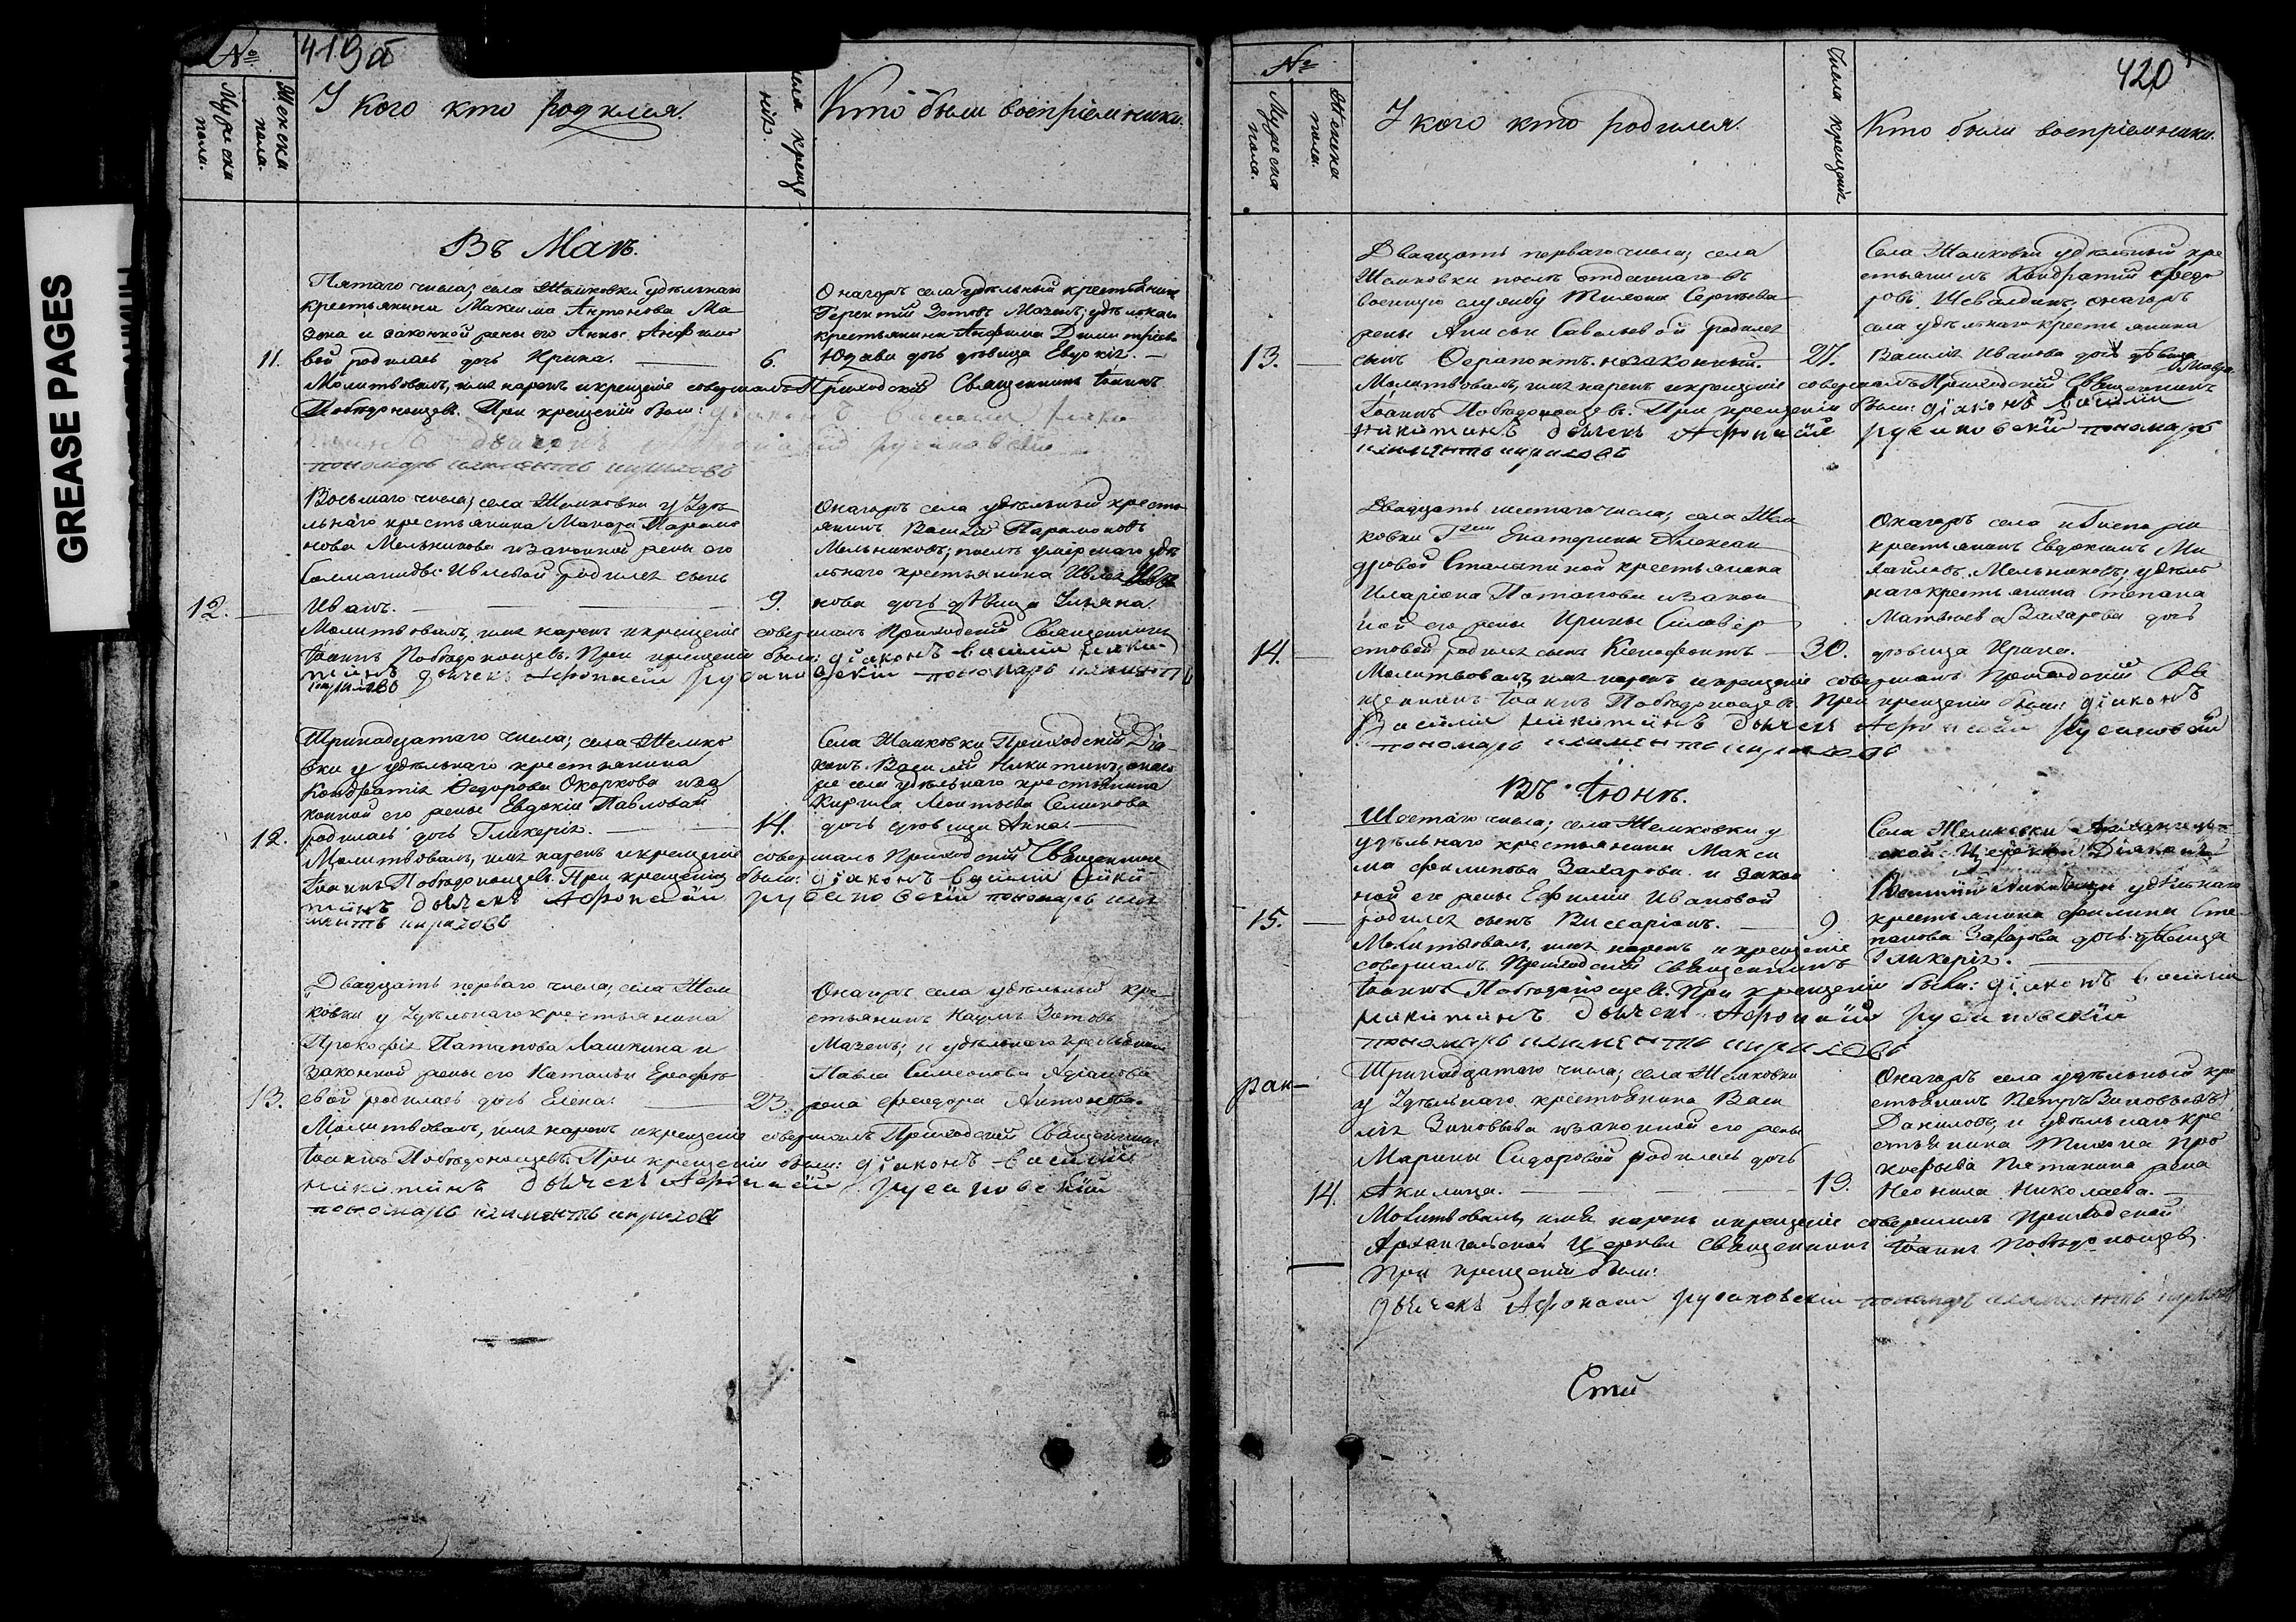 GREASE PAGES
№
419 об
Мужеска пола.
Женска пола.
У кого кто родился.
Числа креще-
нія.
Кто были воспріемники.
Въ Маѣ.
Пятаго числа; села Шемковки удѣльнаго
крестьянина Максима Антонова Ма
зова и законной жены его Анны Анфимо
11. вой родилась дочь Ирина. 6.
Онагожъ села удѣльный крестьянинъ
Терентій Зотовъ Мазевъ; удѣльнаго
крестьянина Анфима Димитріева
Юдава дочь дѣвица Евдокія. —
Молитвовалъ, имя нарекъ и крещеніе совершалъ Приходскій Священникъ Іоаннъ
Побѣдоносцевъ. При крещеніи были: діаконъ василий
дьячекъ русановскій
пономарь климентъ кириловъ
Восьмаго числа; села Шемковки у Удѣ
льнаго крестьянина Макара Парамо
нова Мельникова и законной жены его
Соломаниды Ивлевой родился сынъ
12. Иванъ. 9.
Онагожъ села удѣльный кресть
янинъ Василій Парамоновъ
Мельниковъ; послѣ умершаго удѣ
льнаго крестьянина Ивлея
нова дочь дѣвица Ульяна.
Молитвовалъ, имя нарекъ и крещеніе совершалъ Приходскій Священникъ
Іоаннъ Побѣдоносцевъ. При крещеніи были: діаконъ василий ники-
тинъ дьячекъ Афонасий русановский пономарь климентъ
кириловъ
Тринадцатаго числа; села Шемко
вки у удѣльнаго крестьянина
Кондратія Федорова Окоркова и за
конной его жены Евдокіи Павловой
12. родилась дочь Гликерія. 14.
Села Шемковки Приходскій Діа
конъ Василій Никитинъ; онаго
же села удѣльнаго крестьянина
Кирила Леонтьева Семенова
дочь дѣвица Анна.
Молитвовалъ, имя нарекъ и крещеніе совершалъ Приходскій Священникъ
Іоаннъ Побѣдоносцевъ. При крещеніи были: діаконъ василий ники-
тинъ дьячекъ Афонасий русановский пономарь кли
ментъ кириловъ
Двадцать перваго числа; села Шем
ковки у Удѣльнаго крестьянина
Прокофія Патапова Лашкина и
законной жены его Натальи Ерофѣе
13. вой родилась дочь Елена. 23.
Онагожъ села удѣльный кре
стьянинъ Наумъ Зотовъ
Мазевъ; и удѣльнаго крестьянина
Павла Симеонова
жена Феодора Антонова.
Молитвовалъ, имя нарекъ и крещеніе совершалъ Приходскій Священникъ
Іоаннъ Побѣдоносцевъ. При крещеніи были: діаконъ василий
никитинъ дьячекъ Афонасий русановский
пономарь климентъ кириловъ
№
420
Мужеска пола.
Женска пола.
У кого кто родился.
Числа крещенія
Кто были воспріемники.
Двадцать перваго числа; села
Шемковки послѣ отданнаго въ
военную службу Тихона Сергѣева
жены Анисьи Савельевой родился
13. сынъ Ферапонтъ незаконный. 27.
Села Шемковки удѣльный кре
стьянинъ Кондратій Федо
ровъ Шевалдинъ; онагожъ
села удѣльнаго крестьянина
Василія Иванова дочь дѣвица
Мавра.
Молитвовалъ, имя нарекъ и крещеніе совершалъ Приходскій Священникъ
Іоаннъ Побѣдоносцевъ. При крещеніи были: діаконъ василий
никитинъ дьячекъ Афонасий русановский пономарь
климентъ кириловъ
Двадцать шестаго числа; села Шем
ковки Гжи Екатерины Алексан
дровой Столыпиной крестьянина
Иларіона Потапова и закон
ной его жены Ирины Селивер
14. стовой родился сынъ Ксенофонтъ 30.
Онагожъ села
крестьянинъ Евдокимъ Ми
хайловъ Мельниковъ; удѣль
наго крестьянина Степана
Матвѣева Захарова дочь
дѣвица Ирина.
Молитвовалъ, имя нарекъ и крещеніе совершалъ Приходскій Свя
щенникъ Іоаннъ Побѣдоносцевъ. При крещеніи были: діаконъ
Василий никитинъ дьячекъ Афонасий русановский
пономарь климентъ кириловъ
Въ Іюнѣ.
Шестаго числа; села Шемковки у
удѣльнаго крестьянина Макси
ма Филипова Захарова и закон
ной его жены Ефиміи Ивановой
15. родился сынъ Виссаріонъ. 9
Села Шемковки Архангель-
ской Церкви Діаконъ
Василій Никитинъ удѣльнаго
крестьянина Филипа Сте
панова Захарова дочь дѣвица
Гликерія.
Молитвовалъ, имя нарекъ и крещеніе
совершалъ Приходскій Священникъ
Іоаннъ Побѣдоносцевъ. При крещеніи были: діаконъ василий
никитинъ дьячекъ Афонасий русановский
пономарь климентъ кириловъ
Тринадцатаго числа; села Шемковки
у Удѣльнаго крестьянина Васи
лія Зиновьева и законной его жены
Марины Сидоровой родилась дочь
14. Акилина. 19.
Онагожъ села удѣльный кре
стьянинъ Петръ Зиновьевъ
Даниловъ; и удѣльнаго кре
стьянина Тихона Про
кофьева Патанина жена
Неонила Николаева. —
Молитвовалъ, имя нарекъ и крещеніе совершалъ Приходской
Архангельской Церкви Священникъ Іоаннъ Побѣдоносцевъ.
При крещеніи были:
дьячекъ Афонасий русановский пономарь климентъ кириловъ